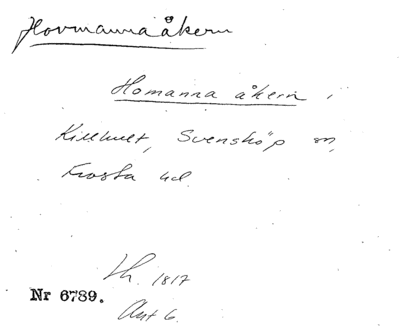 Hovmanna åkern
Homanna åkern i
Killhult, Svensköp sn,
Frosta hd.
Lh. 1817
Nr 6789.
Akt 6.